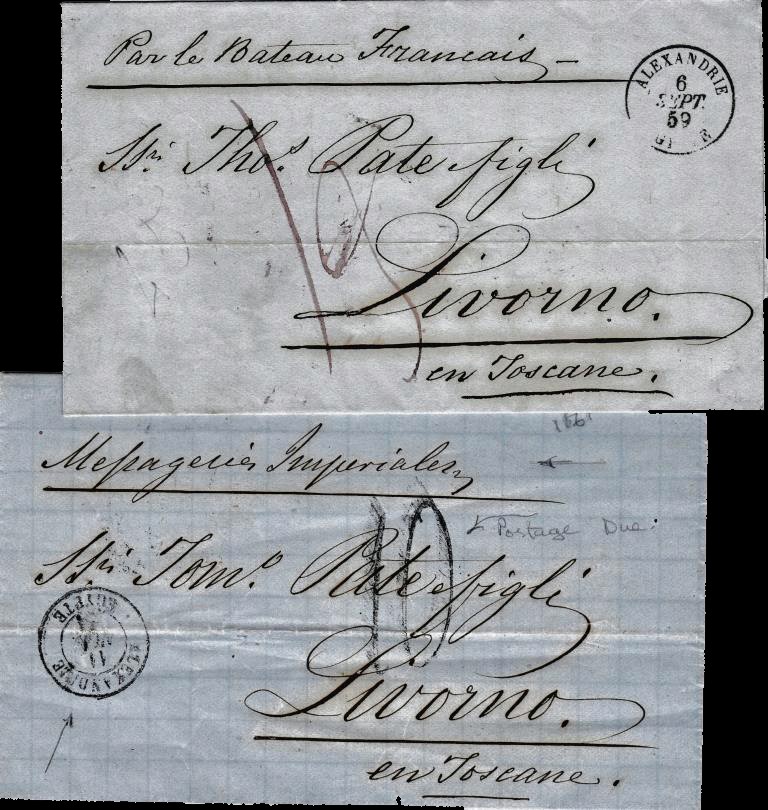 Par le Bateau Francais
ALEXANDRIE
6
SEPT.
59
Ssri Thos. Pate figli
Livorno.
en Toscane.
1861
Messageries Imperiales
10
Postage Due:
Ssri Tomo. Pate figli
ALEXANDRIE
11
EGYPTE
Livorno.
en Toscane.